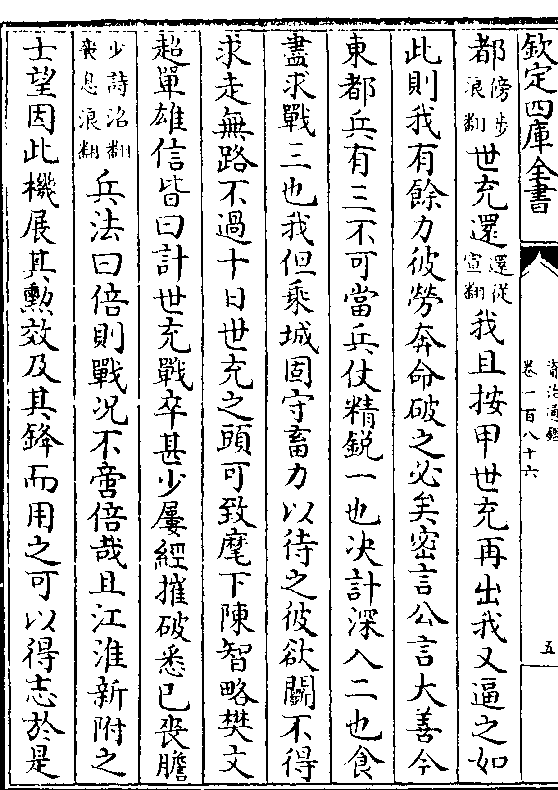 欽定四庫全書
資治通鑑
卷一百八十六
五
都傍步浪翻世充還還從宣翻我且按甲世充再出我又逼之如
此則我有餘力彼勞奔命破之必矣密言公言大善今
東都兵有三不可當兵仗精銳一也決計深入二也食
盡求戰三也我但乘城固守畜力以待之彼欲鬬不得
求走無路不過十日世充之頭可致麾下陳智略樊文
超單雄信皆曰計世充戰卒甚少屢經摧破悉已喪膽
少詩沼翻喪息浪翻兵法曰倍則戰况不啻倍哉且江淮新附之
士望因此機展其勲效及其鋒而用之可以得志於是